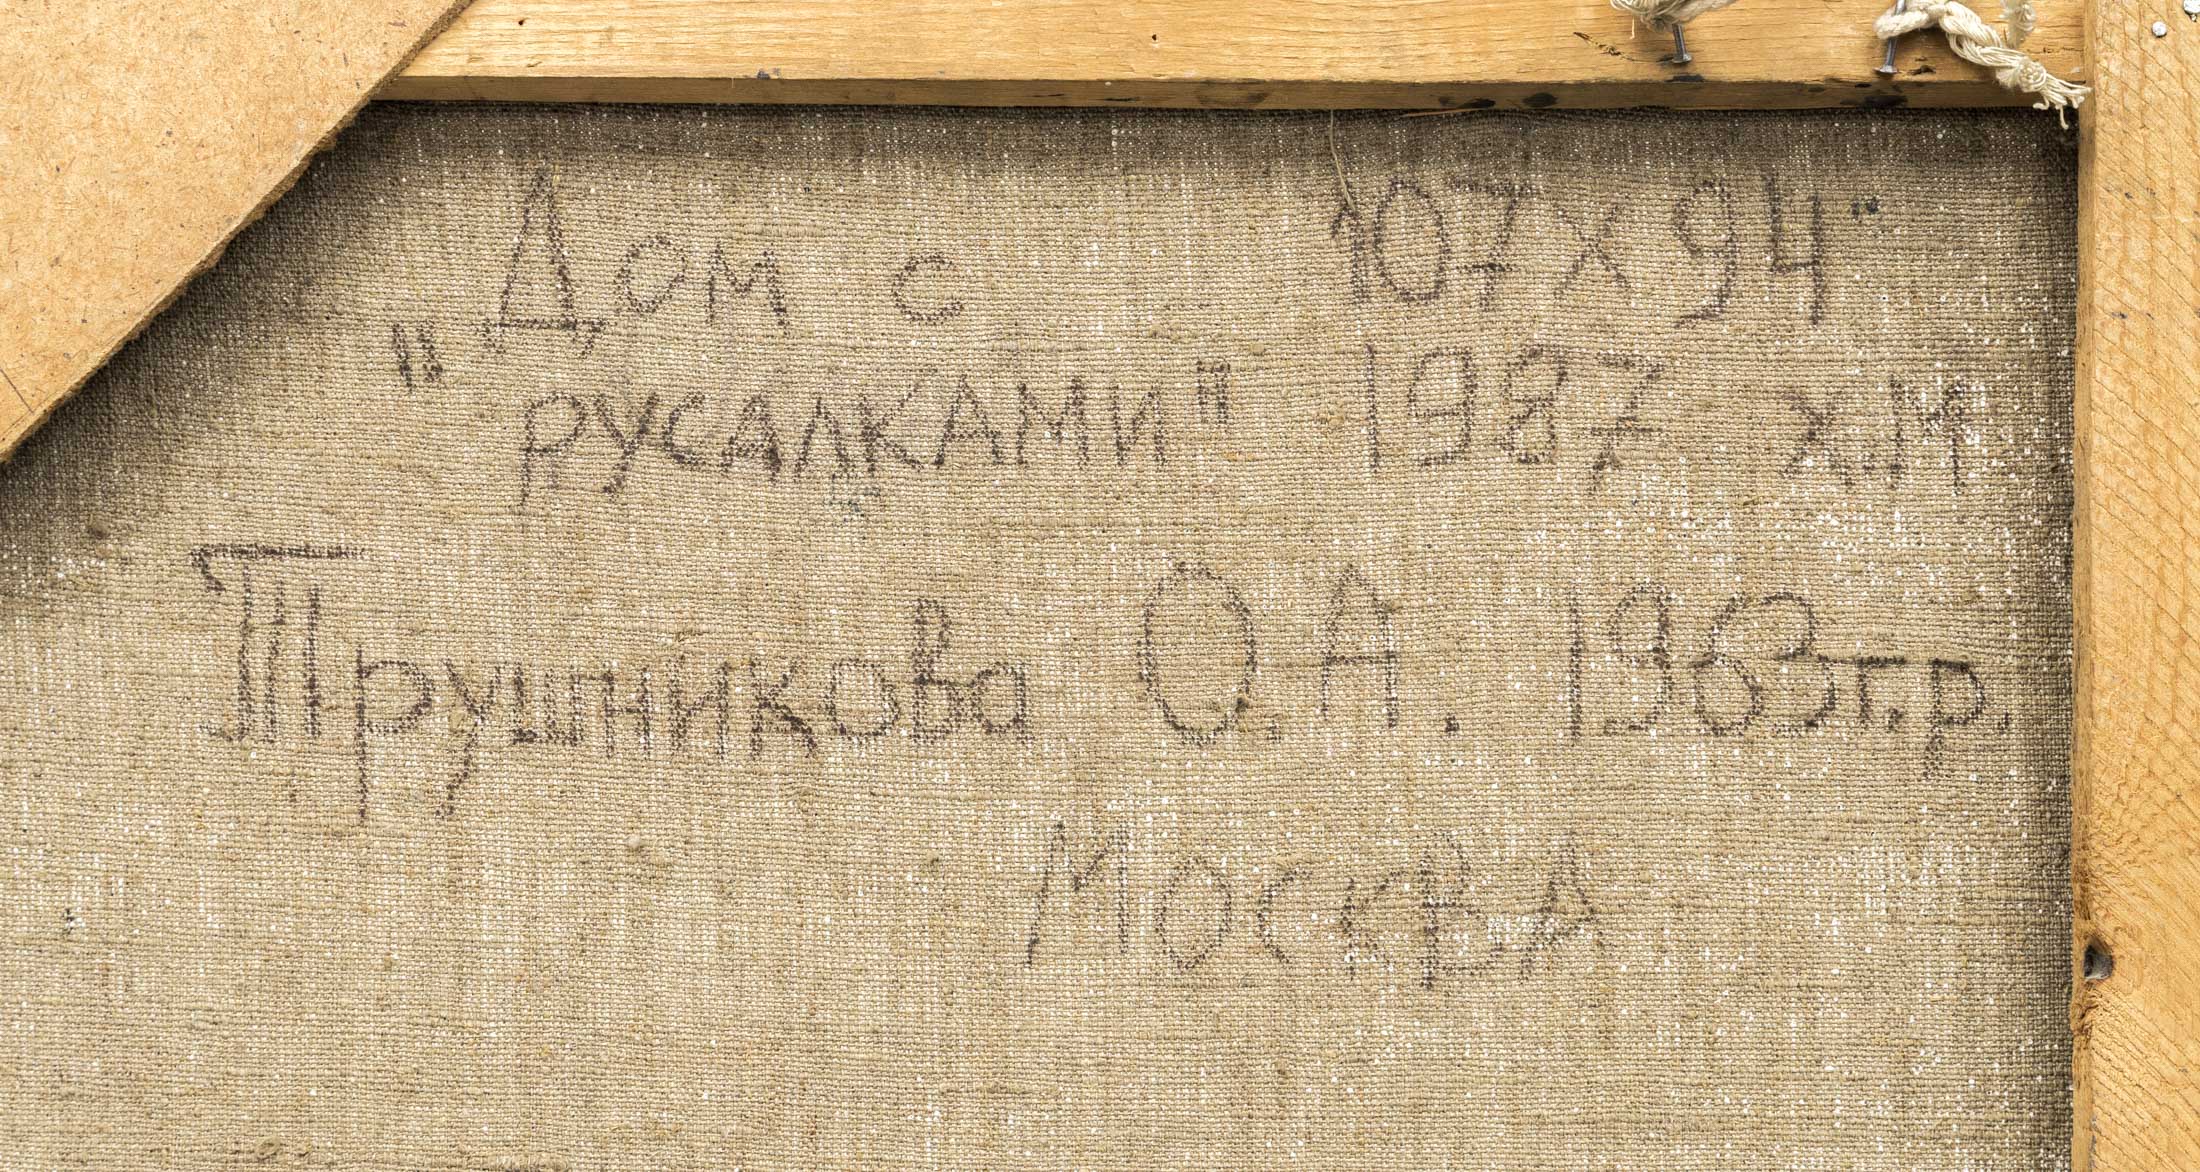 "Дом с 107х94
русалками" 1987 х.м
Трушникова О.А. 1963г.р.
Москва